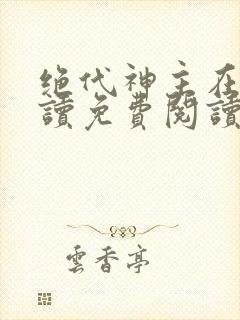 绝代神主在
讀免費閱讀
雲香亭